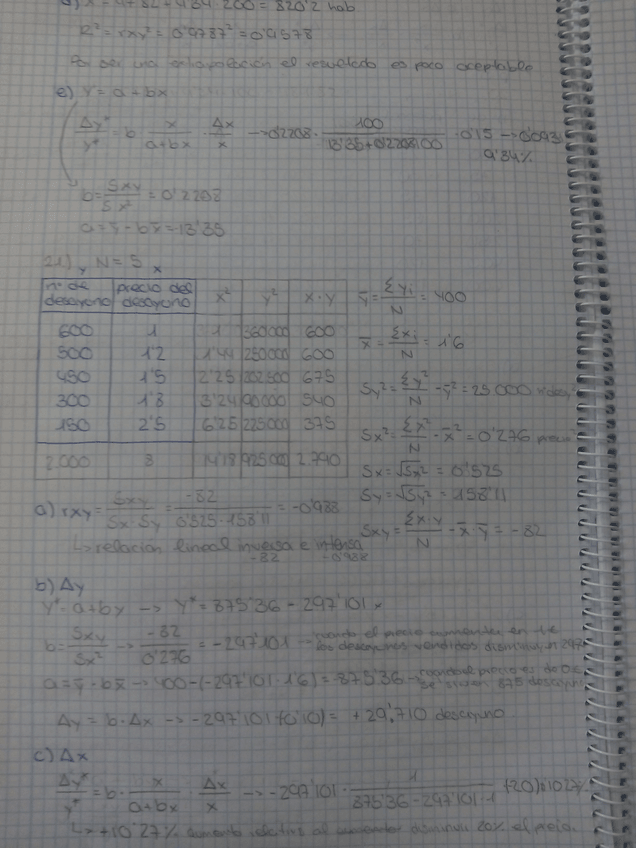 R² = rxy² = 0'9787² = 0'9578
Por ser una extrapolación el resultado es poco aceptable
e) Y = a + bx
Δy*/y* = b · x/(a+bx) · Δx/x → 0'2208 · 100/(13'35+0'2208·100) · 0'15 →
9'34%
b = Sxy/Sx² = 0'2208
a = ȳ - bx̄ = 13'35
21) N = 5
y x
nº de desayuno | precio del desayuno | x² | y² | x·y
600 | 1 | 1 | 360000 | 600
500 | 1'2 | 1'44 | 250000 | 600
450 | 1'5 | 2'25 | 202500 | 675
300 | 1'8 | 3'24 | 90000 | 540
150 | 2'5 | 6'25 | 22500 | 375
2.000 | 8 | 14'18 | 925000 | 2.790
ȳ = Σyi/N = 400
x̄ = Σxi/N = 1'6
Sy² = Σy²/N - ȳ² = 25000
Sx² = Σx²/N - x̄² = 0'276
Sx = √Sx² = 0'525
Sy = √Sy² = 158'11
Sxy = Σx·y/N - x̄·ȳ = -82
a) rxy = Sxy/(Sx·Sy) = -82/(0'525·158'11) = -0'988
↳ relación lineal inversa e intensa
-82 -0'988
b) Δy
Y* = a + bx → Y* = 875'36 - 297'101x
b = Sxy/Sx² → -82/0'276 = -297'101 → cuando el precio aumenta en 1€ los desayunos vendidos disminuyen 297
a = ȳ - bx̄ → 400 - (-297'101·1'6) = 875'36 → cuando el precio es de 0€ se 875
Δy = b·Δx → -297'101·(-0'10) = +29'710 desayuno
c) Δx
Δy*/y* = b · x/(a+bx) · Δx/x → -297'101 · 1/(875'36 - 297'101·1)
↳ +10'27% aumento relativo al disminuir 20% el precio.